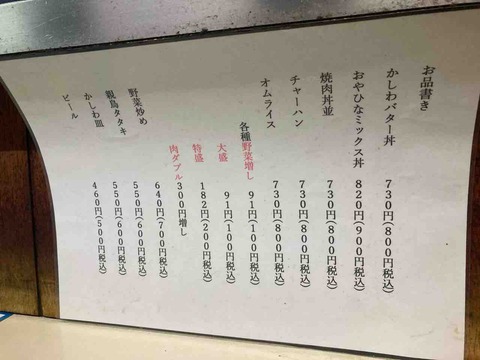 お品書き
かしわバター丼 730円(800円税込)
おやひなミックス丼 820円(900円税込)
焼肉丼並 730円(800円税込)
チャーハン 730円(800円税込)
オムライス 730円(800円税込)
各種野菜増し 91円(100円税込)
大盛 91円(100円税込)
特盛 182円(200円税込)
肉ダブル 300円増し
野菜炒め 640円(700円税込)
親鳥タタキ 550円(600円税込)
かしわ皿 550円(600円税込)
ビール 460円(500円税込)